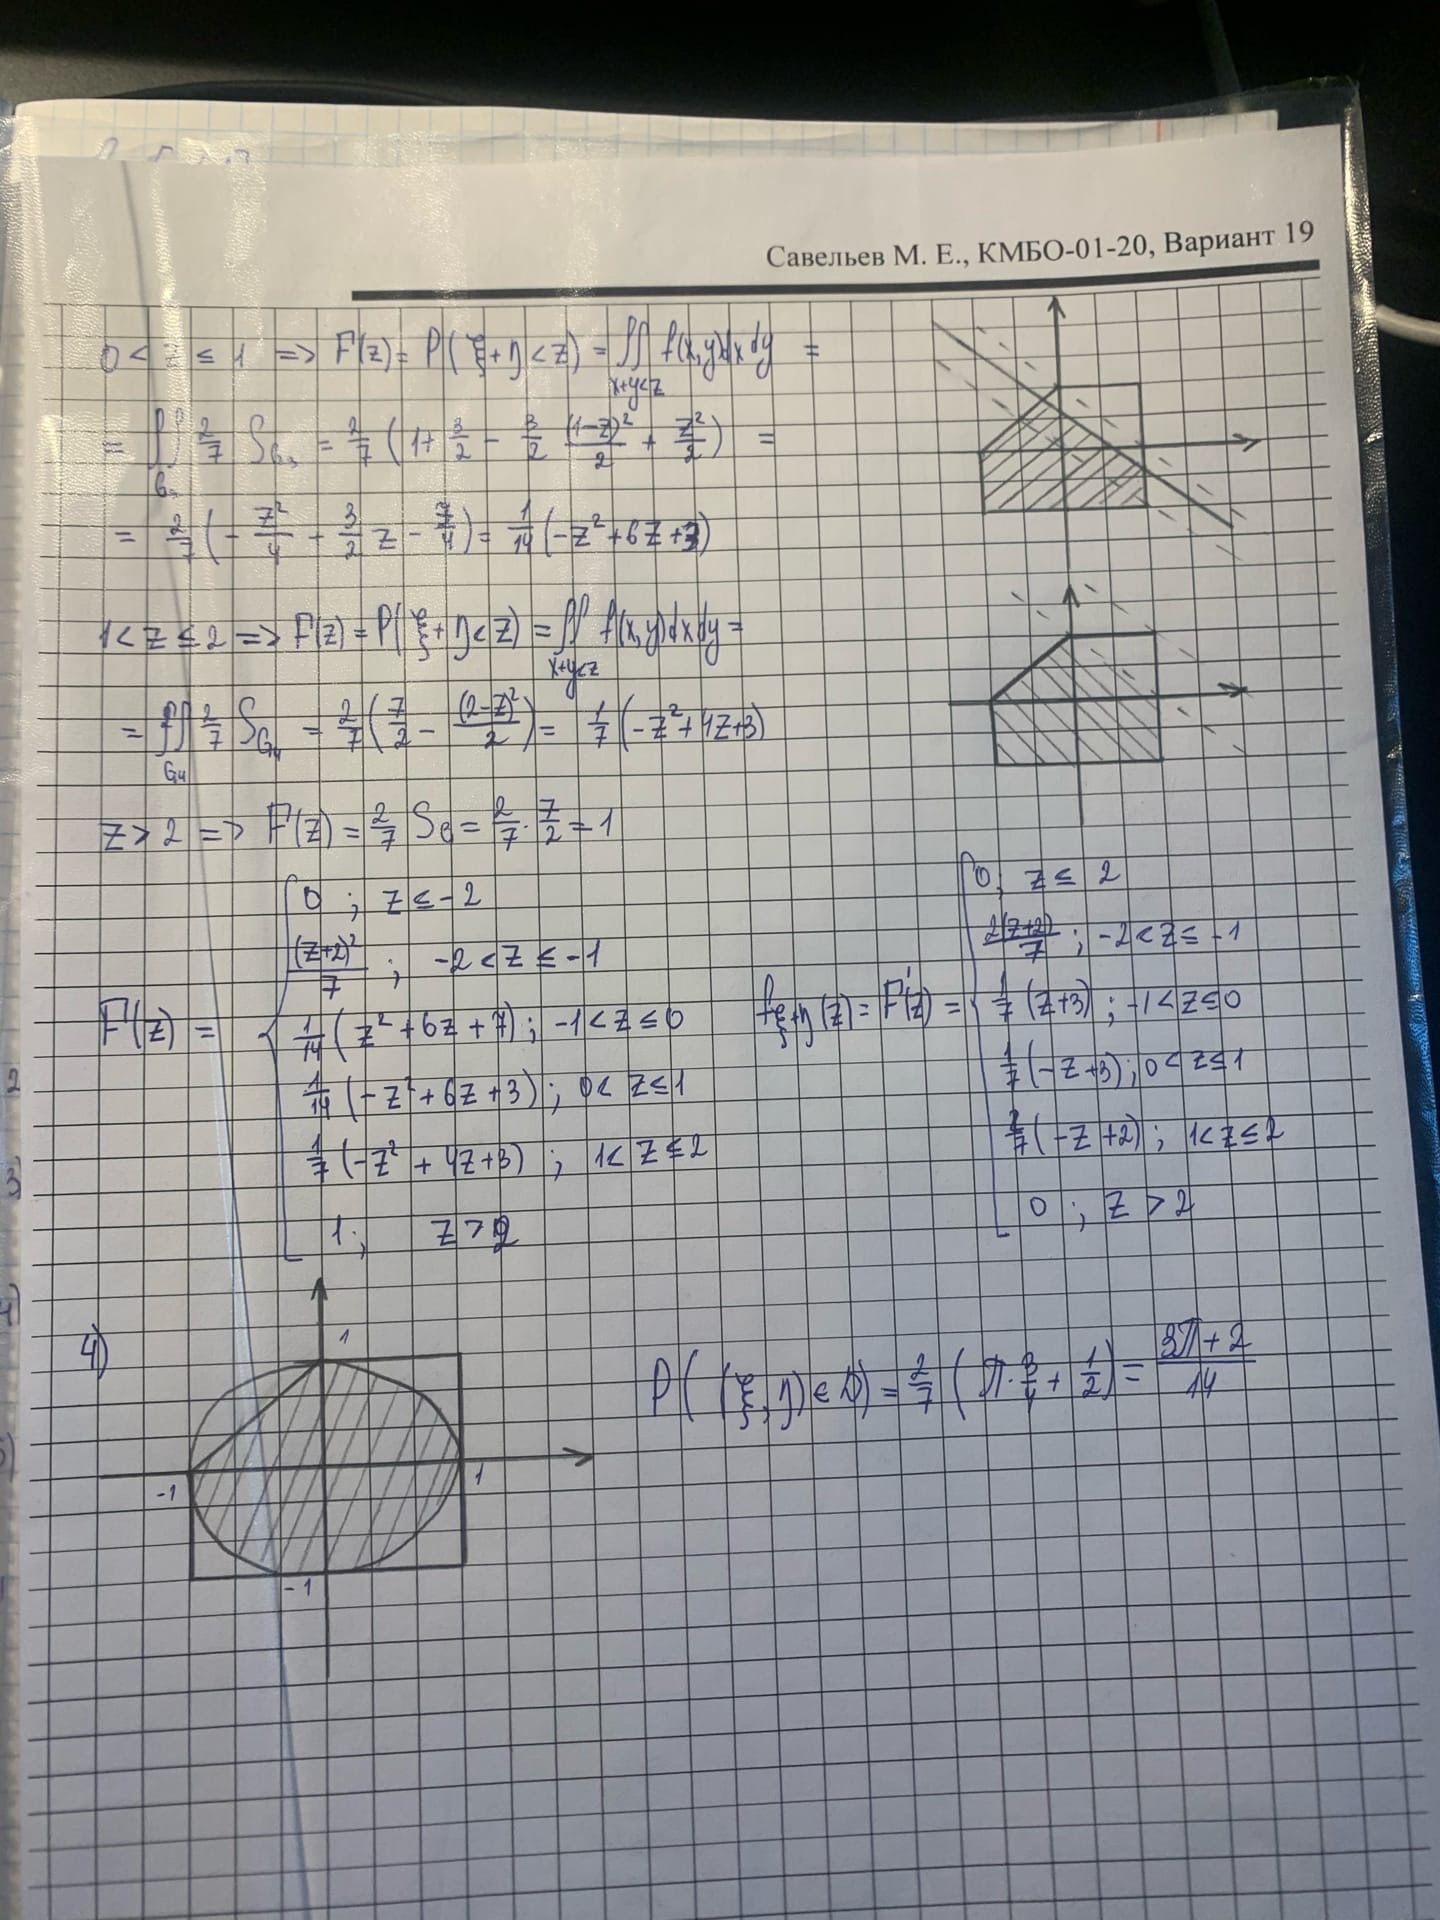 Савельев М. Е., КМБО-01-20, Вариант 19
0 < z ≤ 1 => F(z) = P(ξ+η<z) = ∬ f(x,y)dxdy =
x+y<z
= ∬ 2/7 S = 2/7 (1+ 3/2 - 3/2 (1-z)²/2 + z²/2) =
= 2/7 (- z²/4 + 3/2 z - 7/4) = 1/14 (-z²+6z+3)
1<z≤2 => F(z) = P(ξ+η<z) = ∬ f(x,y)dxdy =
x+y<z
= ∬ 2/7 S_G₄ = 2/7 (7/2 - (2-z)²/2) = 1/7 (-z²+4z+3)
G₄
z>2 => F(z) = 2/7 S_G = 2/7 · 7/2 = 1
F(z) = { 0 ; z ≤ -2
(z+2)²/7 ; -2<z≤-1
1/14 (z²+6z+7) ; -1<z≤0
1/14 (-z²+6z+3) ; 0<z≤1
1/7 (-z²+4z+3) ; 1<z≤2
1 ; z>2
f ξ+η (z) = F'(z) = { 0, z≤ 2
2(z+2)/7 ; -2<z≤-1
1/7 (z+3) ; -1<z≤0
1/7 (-z+3) ; 0<z≤1
2/7 (-z+2) ; 1<z≤2
0 ; z>2
4)
1
-1
1
-1
P((ξ,η)∈D) = 2/7 (π·3/4 + 1/2) = 3π+2/14